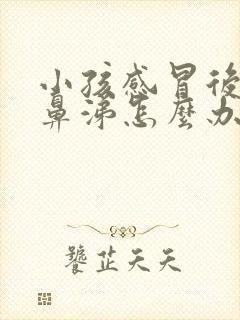 小孩感冒後
鼻涕怎麼办
饕芷天天